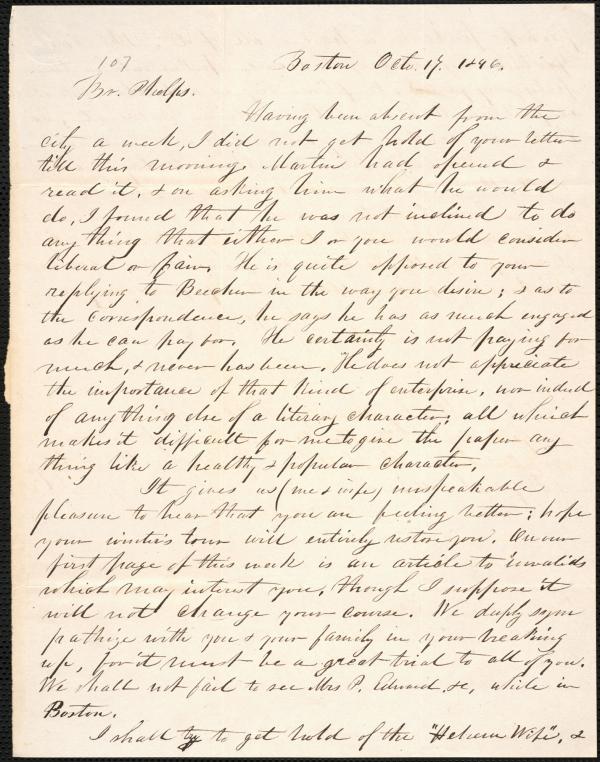 107
Boston Oct. 17. 1846.
Br. Phelps.
Having been absent from the
city a week, I did not get hold of your letter
till this morning. Martin had opened &
read it, & on asking him what he would
do, I found that he was not inclined to do
any thing that either I or you would consider
liberal or fair. He is quite opposed to your
replying to Beecher in the way you desire; & as to
the correspondence, he says he has as much engaged
as he can pay for. He certainly is not paying for
much, & never has been. He does not appreciate
the importance of that kind of enterprise, nor indeed
of any thing else of a literary character; all which
makes it difficult for me to give the paper any
thing like a healthy & popular character.
It gives us (me & wife) unspeakable
pleasure to hear that you are feeling better; hope
your winter's tour will entirely restore you. On our
first page of this week is an article to invalids
which may interest you, though I suppose it
will not change your course. We deeply sym
pathize with you & your family in your breaking
up, for it must be a great trial to all of you.
We shall not fail to see Mrs P. Edward, &c, while in
Boston.
I shall try to get hold of the "Wife", &